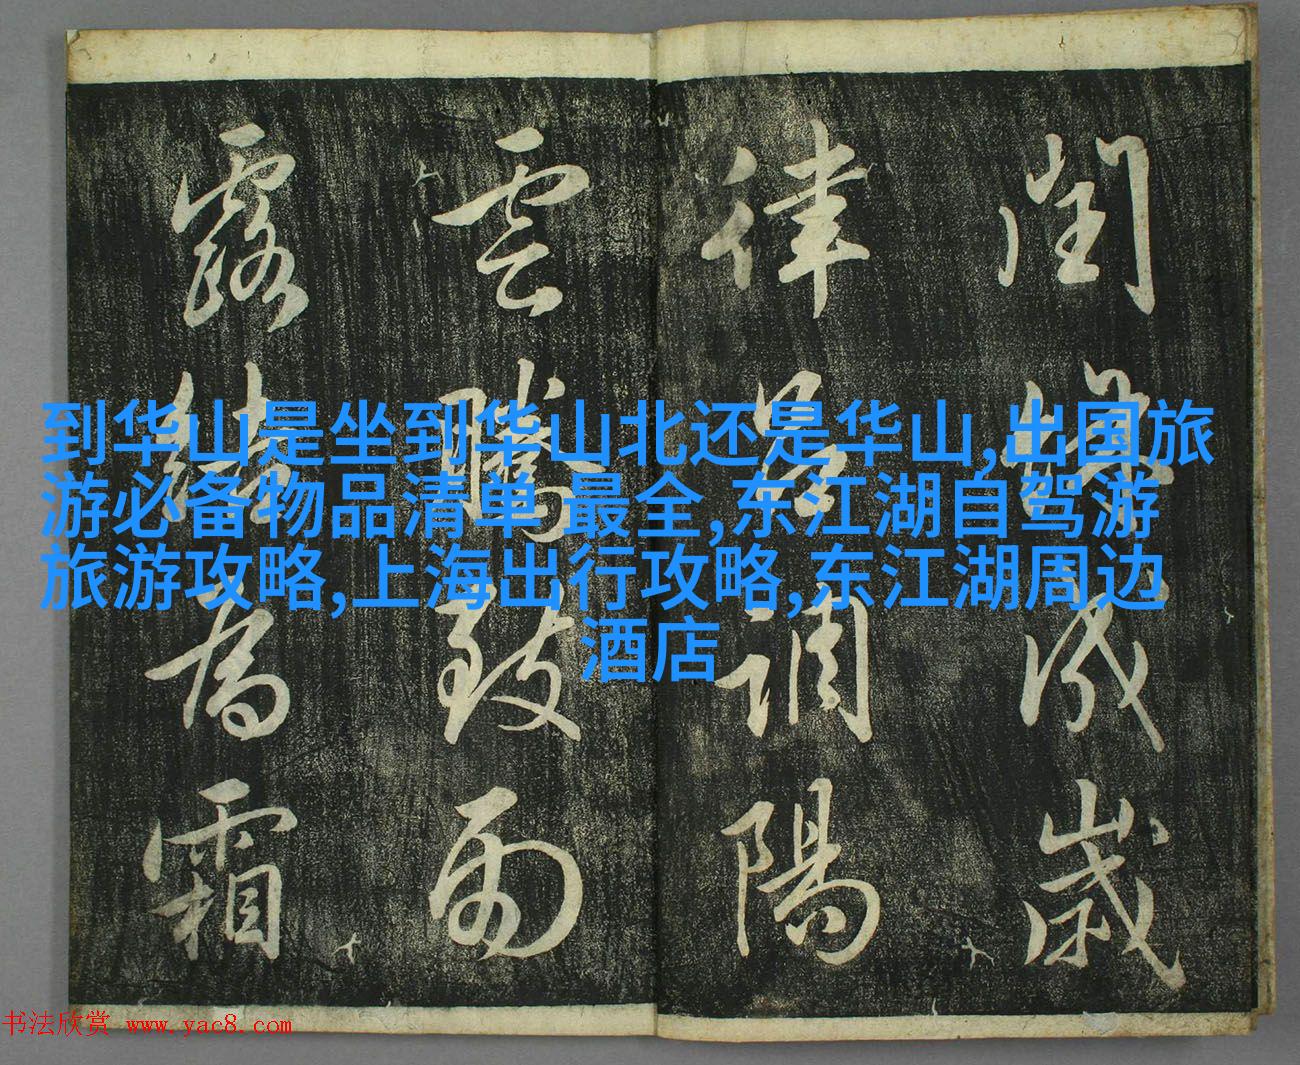 閏餘成歲
律呂調陽
雲騰致雨
露結為霜
到华山是坐到华山北还是华山,出国旅
游必备物品清单 最全,东江湖自驾游
旅游攻略,上海出行攻略,东江湖周边
酒店
书法欣赏 www.yac8.com